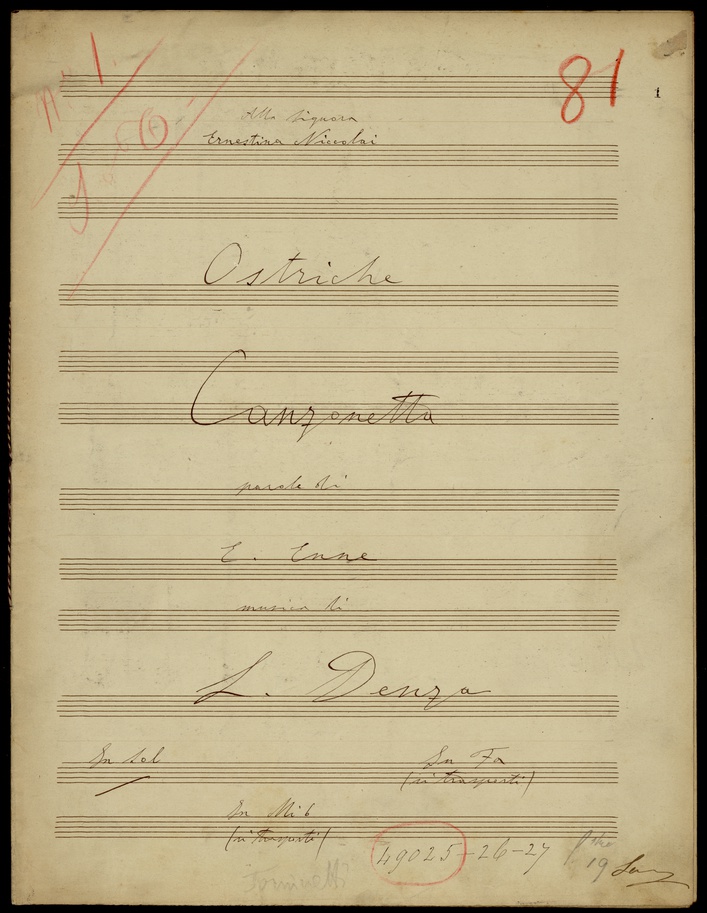 Nº 1.
81
1
Alla Signora
Ernestina Niccolai
Ostriche
Canzonetta
parole di
E. Enne
musica di
L. Denza
In Sol
In Fa
(si trasporti)
In Mib
(si trasporti)
49025-26-27
19